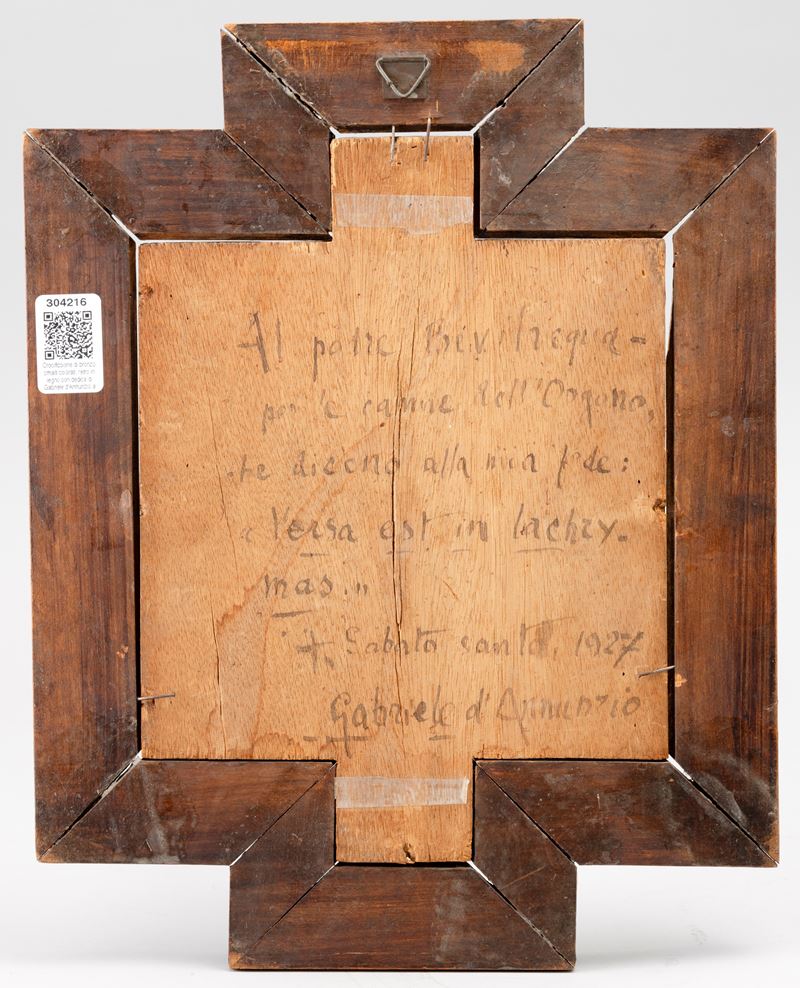 304216
Crocifissione di bronzo
smalti colorati, retro in
legno con dedica di
Gabriele d'Annunzio a
Al patre Bev
per le canne dell'Organo,
te dicono alla mia fede:
« Versa est in lachry-
mas. »
†. Sabato santo. 1927
Gabriele d'Annunzio